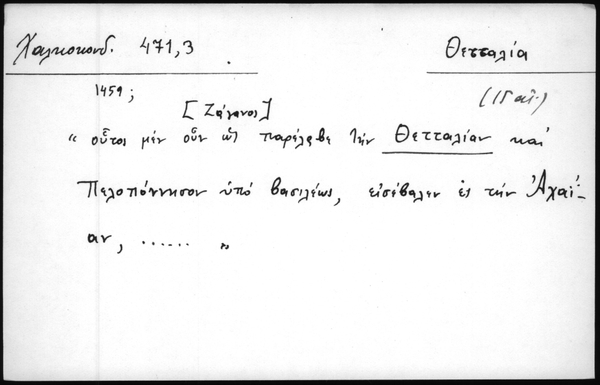 Χαλκοκονδ. 471,3
Θετταλία
1459 ;
(15 αἰ.)
[Ζάγανος]
« οὗτος μὲν οὖν ὡς παρέλαβε τὴν Θετταλίαν καὶ
Πελοπόννησον ὑπὸ βασιλέως, εἰσέβαλεν ἐς τὴν Ἀχαΐ-
αν, ...... »